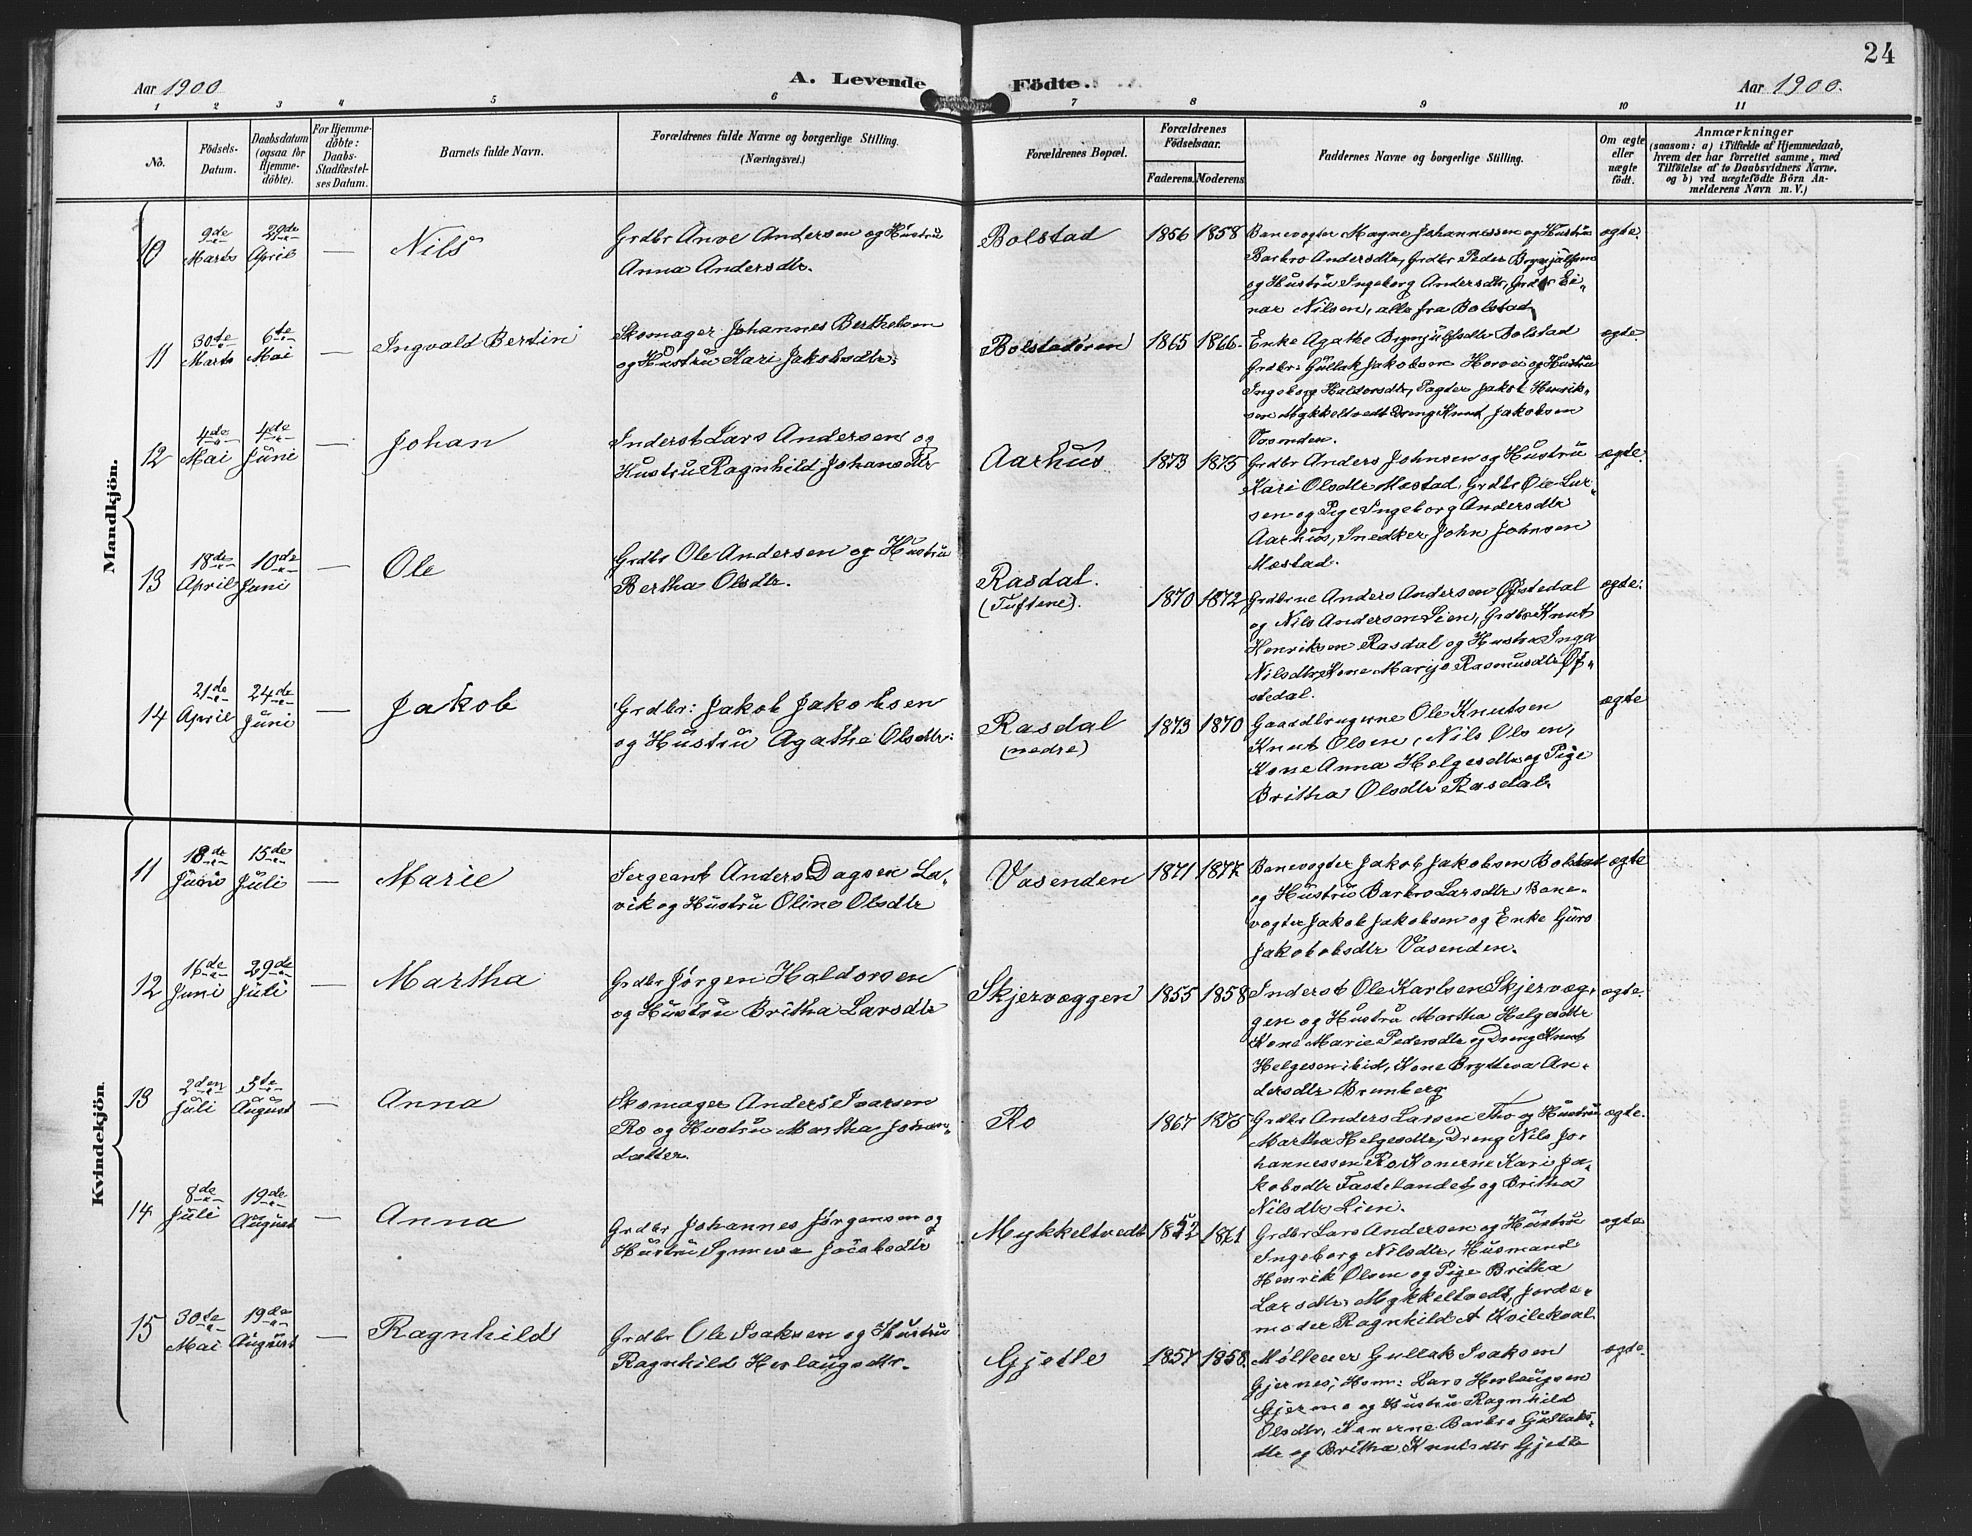 24
Aar 1900
A. Levende
Födte.
Aar 1900.
1 2 3 4 5 6 7 8 9 10 11
No.
Födsels-
Datum.
Daabsdatum
(ogsaa for
Hjemme-
döbte).
For Hjemme-
döbte:
Daabs-
Stadfæstel-
ses Datum.
Barnets fulde Navn.
Forældrenes fulde Navne og borgerlige Stilling.
(Næringsvei.)
Forældrenes Bopæl.
Forældrenes
Födselsaar.
Faderens. Moderens.
Faddernes Navne og borgerlige Stilling.
Om ægte
eller
uægte
födt.
Anmærkninger
(saasom: a) i Tilfælde af Hjemmedaab,
hvem der har forrettet samme, med
Tilföielse af to Daabsvidners Navne.
og b) ved uægtefödte Börn An-
melderens Navn m. V.)
Mandkjön.
10
9de
Marts
29de
April
—
Nils
Grdbr Anve Andersen og Hustru
Anna Andersdtr.
Bolstad
1856 1858
Banevogter Magne Johannessen og Hustru
Barbro Andersdtr, Grdbr Peder Brynjulfsen
og Hustru Ingeborg Andersdtr, Grdbr Ei-
nar Nilsen, alle fra Bolstad
ægte.
11
30te
Marts
6te
Mai
—
Ingvald Bertin
Skomager Johannes Berthelsen
og Hustru Kari Jakobsdtr.
Bolstadøren
1865 1866.
Enke Agathe Brynjulfsdtr Bolstad
Grdbr: Gullak Jakobsen Horvei og Hustru
Ingeborg Haldorsdtr, Pagter Jakob Henrik-
sen Mykkeltvedt Dreng Knut Jakobsen
ægte.
12
4de
Mai
4de
Juni
—
Johan
Inderst Lars Andersen og
Hustru Ragnhild Johansdtr
Aarhus
1873 1875
Grdbr Anders Johnsen og Hustru
Kari Olsdtr Mæstad, Grdbr Ole Lar-
sen og Pige Ingeborg Andersdtr
Aarhus, Snedker John Johnsen
Mæstad.
ægte.
13
18de
April
10de
Juni
—
Ole
Grdbr Ole Andersen og Hustru
Bertha Olsdtr.
Rasdal.
(Tuftene).
1870 1872
Grdbrne Anders Andersen Øfstedal
og Nils Andersen Lien, Grdbr Knut
Henriksen Rasdal og Hustru Inga
Nilsdtr, Kone Marijo Rasmusdtr Øf-
stedal.
ægte.
14
21de
April
24de
Juni
—
Jakob
Grdbr: Jakob Jakobsen
og Hustru Agathe Olsdtr.
Rasdal
(nedre)
1873 1870
Gaardbrugerne Ole Knutsen
Knut Olsen, Nils Olsen,
Kone Anna Helgesdtr og Pige
Britha Olsdtr Rasdal.
ægte
Kvindekjön.
11
18de
Juni
15de
Juli
—
Marie
Sergeant Anders Dagsen La-
vik og Hustru Oline Olsdtr
Vasenden
1871 1877.
Banevogter Jakob Jakobsen Bolstad
og Hustru Barbro Larsdtr Bane-
vogter Jakob Jakobsen og Enke Guro
Jakobobsdtr Vasenden.
ægte
12
16de
Juni
29de
Juli
—
Martha
Grdbr Jørgen Haldorsen
og Hustru Britha Larsdtr
Skjervæggen
1855 1858
Inderst Ole Karlsen Skjervæg-
gen og Hustru Martha Helgesdtr
Kone Marie Pedersdtr og Dreng Knut
Helgesen ibid, Kone Brytteva An-
dersdtr Brunberg
ægte.
13
2den
Juli
5te
August
—
Anna
Skomager Anders Ivarsen
Ro og Hustru Martha Johans-
datter.
Ro
1867 1875
Grdbr Anders Larsen Tho og Hustru
Martha Helgesdtr, Dreng Nils Jo-
hannessen Ro Konerne Kari Ja-
kobsdtr Fastelandet og Britha
Nilsdtr Lien.
ægte.
14
8de
Juli
19de
August
—
Anna
Grdbr Johannes Jørgensen og
Hustru Synneve Jacobsdtr
Mykkeltvedt
1852 1861
Grdbr Lars Andersen og Hustru
Ingeborg Nilsdtr, Husmand
Henrik Olsen og Pige Britha
Larsdtr, Mykkeltvedt, Jorde-
moder Ragnhild A Kvilekval.
ægte
15
30te
Mai
19de
August
—
Ragnhild
Grdbr Ole Isaksen og Hustru
Ragnhild Herlaugsdtr.
Gjelle
1857 1858.
Møllener Gullak Isaksen
Gjernes, Hsm: Lars Herlaugsen
Gjermo og Hustru Ragnhild
Olsdtr, Konerne Barbro Gullaks-
dtr og Britha Knutsdtr Gjelle
ægte.